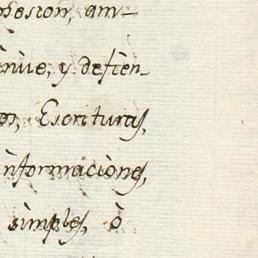 posesion, am-
inùe, y defien-
os, Escrituras,
informaciònes,
simples, ò